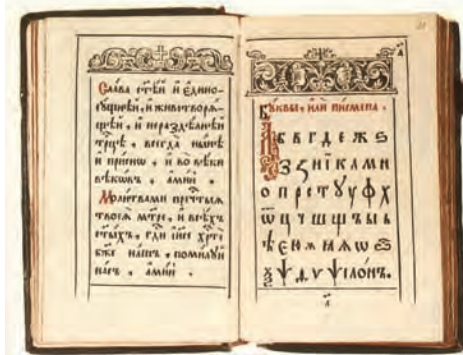 Сла́ва ст҃ѣ́й и҆ є҆дино-
сꙋ́щнѣй, и҆ животворѧ́-
щѣй, и҆ нераздѣ́лнѣй
трⷪ҇цѣ, всегда̀ ны́нѣ
и҆ при́снѡ, и҆ во вѣ́ки
вѣкѡ́въ, а҆ми́нь.
Моли́твами пречⷭ҇тыѧ
твоеѧ̀ мт҃ре, и҆ всѣ́хъ
ст҃ы́хъ, гдⷭ҇и і҆и҃се хрⷭ҇тѐ
бж҃е на́шъ, поми́лꙋй
на́съ, а҆ми́нь.
Бꙋ́квы, и҆лѝ писмена̀.
А Б В Г Д Е Ж Ѕ
З Ꙁ Н Ї К Л М Н
О П Р С Т Ꙋ У Ф Х
Ѿ Ц Ч Ш Щ Ъ Ы Ь
Ѣ Є Ю Ѫ Ѩ Ѧ Ѡ
Ѯ Ѱ Ѳ Ѵ Ѱїло́нъ.